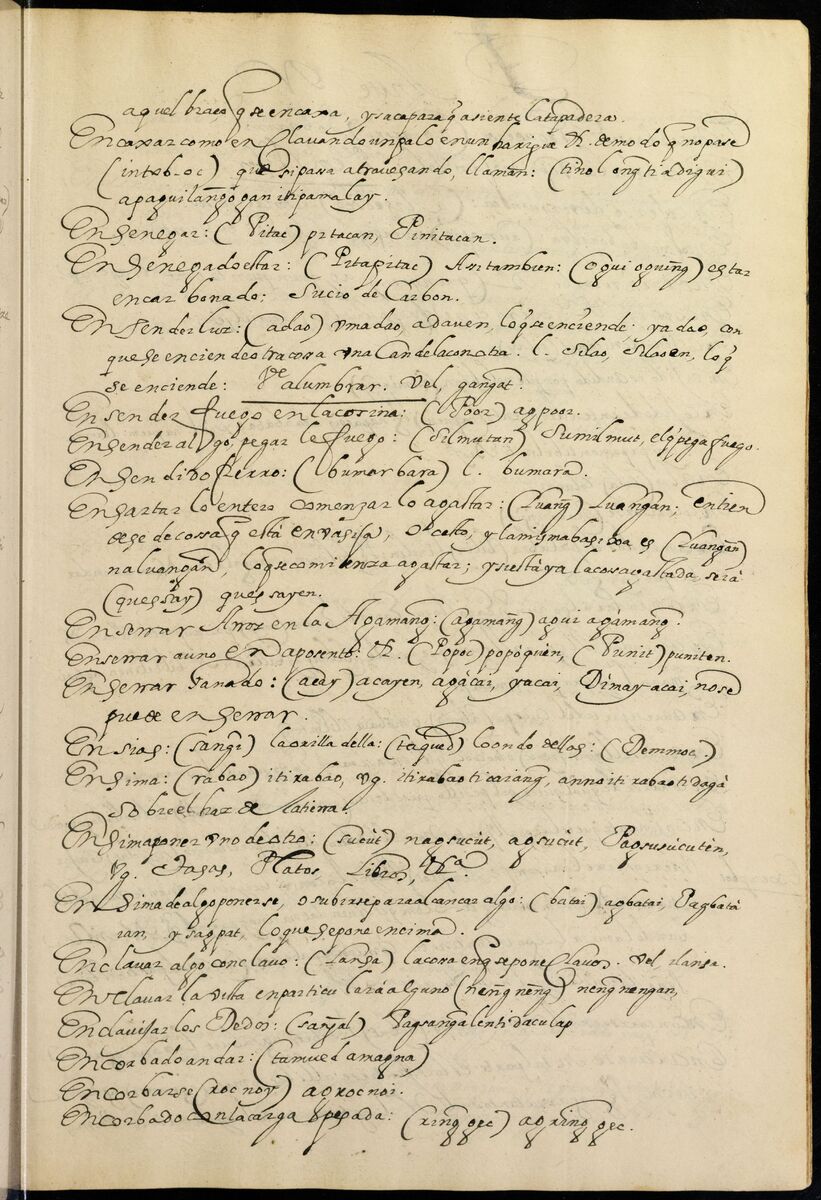 aquel braço q̃ se encaxa, y saca para q̃ asiente la tapadera.
Encaxar como en Clavando un palo en un harigue &. de modo q̃ no pase
(inteb-oc) que si pasa atravesando, llaman: (tinolong ti adigui)
apaguilangogan itipamalay.
Ensenegar: (Pitac) pitacan, Pinitacan.
Ensenegado estar: (Pitapitac) Ar tambien: (oguioguing) estar
encarbonado: Sucio de Carbon.
Ensender luz: (adao) vmadao, adaven, lo q̃ se enciende; yadao, con
que se enciende otra cosa vna Candela con otra. l. silao, silaoen, lo q̃
se enciende: Vde alumbrar. Vel, gangat.
Ensender fuego en la cosina: (Poor) agpoor.
Ensender algo, pegar le fuego: (Silmutan) Sumilmut, el q̃ pega fuego.
Ensendido fierro: (bumarbara) l. bumara.
Ensartar lo entero comenzar lo agastar: (Luang) Luangan; entien
dese de cossa q̃ està en vasija, o cesto, y la misma basija es (Luangan)
naluangan, lo q̃ se comienza agastar; y si està ya la cosa gastada, serà
(quessay) quessayen.
Enserrar Arroz en la Agamang: (agamang) agui agàmang.
Enserrar auno en aposento: &. (Popoc) popòquen, (Punit) puniten.
Enserrar Ganado: (acay) acayen, agàcai, yacai, Dimayacai, no se
puede enserrar.
Ensias: (sangi) la orilla della: (taqued) lo ondo dellas: (Demmoc.)
Ensima: (rabao) itirabao, vg. itirabao ti caiang, anno iti rabao ti dagà
Sobre el haz de la tierra.
Ensima poner vno de otro: (sucùt) nagsucùt, agsucùt, Pagsusùcutèn,
vg. Tasas, Platos Libros, &ca.
Ensima de algo ponerse, o subirse para alcançar algo: (batai) agbatai, Pagbatà
ian, y sagpat, lo que se pone encima.
Enclavar algo con clavo: (Lansa) la cosa en q̃ se pone Clavos. vel ilansa.
Enclavar la vista en particular à alguno (neng neng) nengnengan,
Enclavijar los Dedos: (sangal) Pagsangalen ti daculap
Encorbado andar: (tamued a magna)
Encorbarse (rocnoy) agrocnoi.
Encorbado con la carga pesada: (ringgec) agringgec.